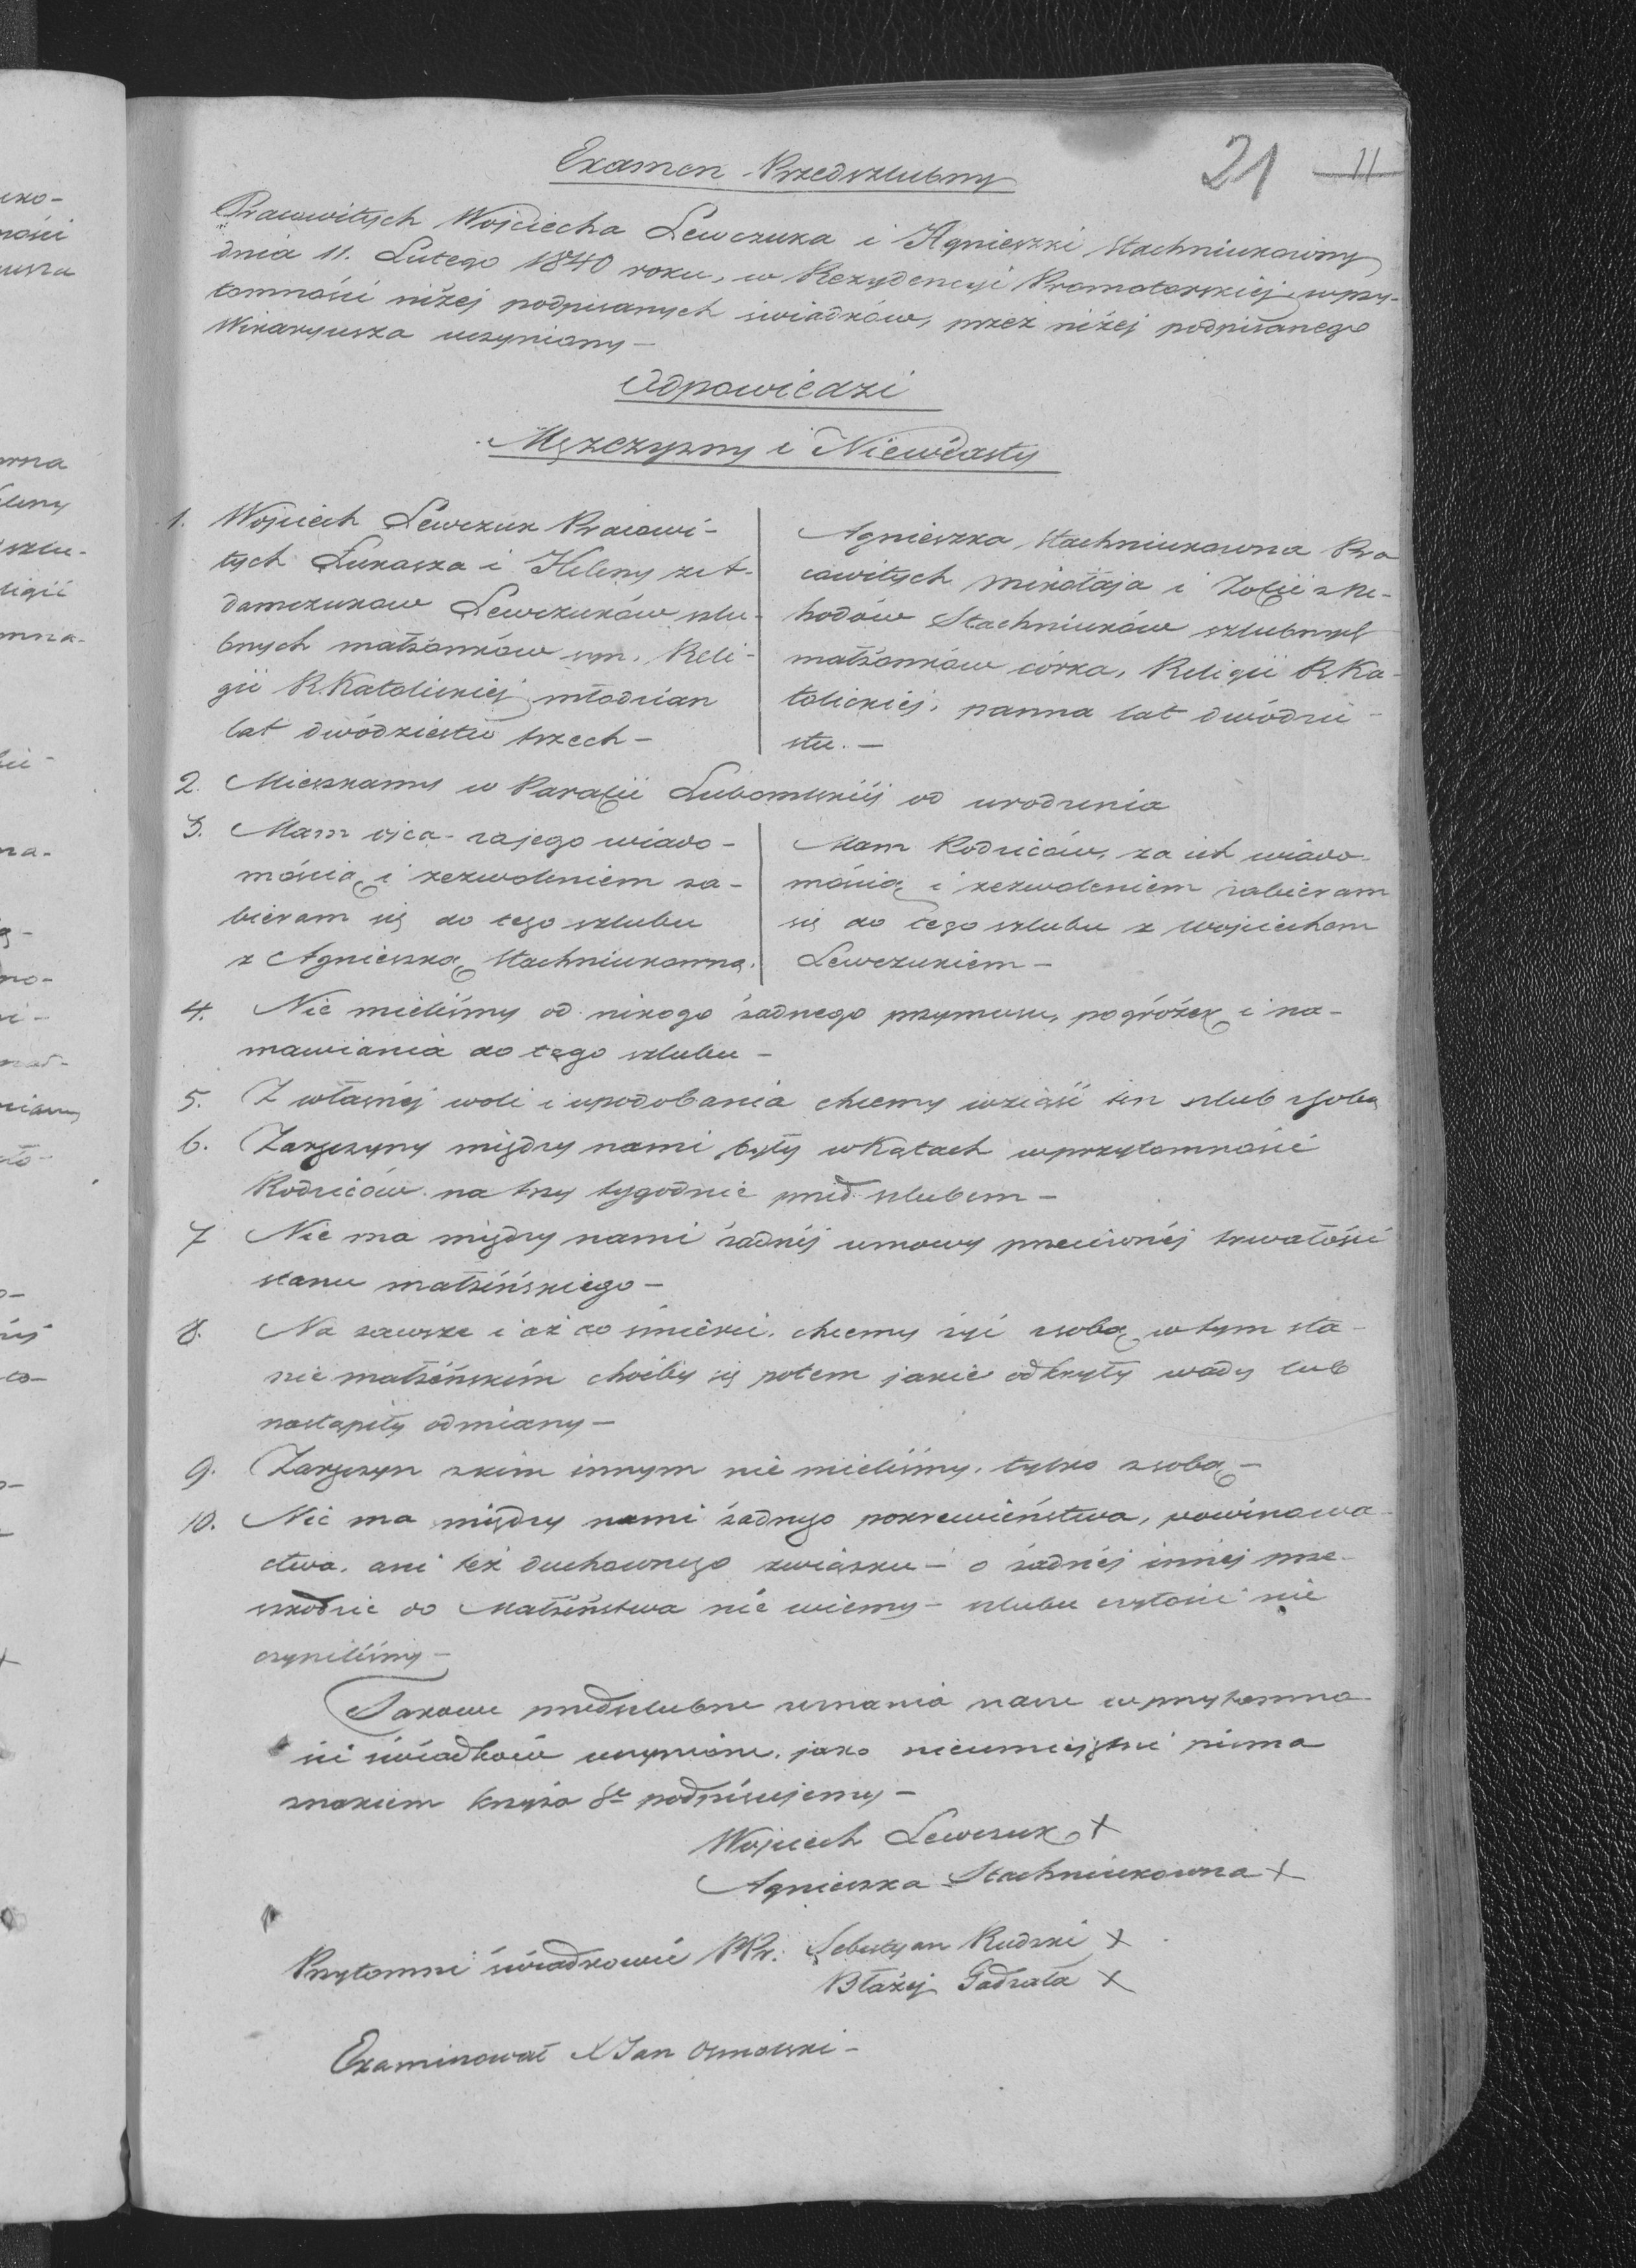 21 11
Examen Przedszlubny
Pracowitych Wojciecha Lewczuka i Agnieszki Stachniukowny
dnia 11. Lutego 1840 roku, w Rezydencyi Promotorskiej w przy-
tomności niżej podpisanych świadków, przez niżej podpisanego
Wikaryusza uczyniony —
Odpowiedzi
Męzczyzny i Niewiasty
1. Wojciech Lewczuk Pracowi-
tych Łukasza i Heleny z A-
damczukow Lewczuków szlu-
bnych małżonków syn, Reli-
gii R. Katolickiej młodzian
lat dwódziestu trzech —
Agnieszka Stachniukowna Pra
cowitych Mikołaja i Zofii z Ni-
hodów Stachniuków szlubnych
małżonków córka, Religii R. Ka-
tolickiej, panna lat dwódzie-
stu. —
2. Mieszkamy w Parafii Lubomskiej od urodzenia
3. Mam ojca - za jego wiado-
mością i zezwoleniem za-
bieram się do tego szlubu
z Agnieszką Stachniukowną.
Mam Rodziców, za ich wiado-
mością i zezwoleniem zabieram
się do tego szlubu z Wojciechem
Lewczukiem —
4. Nie mieliśmy od nikogo żadnego przymusu, pogróżek i na-
mawiania do tego szlubu —
5. Z własnej woli i upodobania chcemy wziąść ten szlub z sobą
6. Zaręczyny między nami były w Kątach w przytomności
Rodziców na trzy tygodnie przed szlubem —
7 Nie ma między nami żadnéj umowy przeciwnéj trwałości
stanu małżeńskiego —
8. Na zawsze i aż do śmierci, chcemy żyć z sobą w tym sta-
nie małżeńskim choćby się potem jakie odkryły wady lub
nastąpiły odmiany —
9. Zaręczyn z kim innym nie mieliśmy, tylko z sobą —
10. Nie ma między nami żadnego pokrewieństwa, powinowa-
ctwa, ani też duchownego związku — o żadnéj innéj prze-
szkodzie do Małżeństwa nie wiemy — szlubu czystości nie
czyniliśmy —
Takowe przedszlubne zeznania nasze w przytomno-
ści świadków uczynione, jako nieumiejętni pisma
znakiem krzyża Sго podpisujemy —
Wojciech Lewczuk X
Agnieszka Stachniukowna X
Przytomni świadkowie PPr. Sebestyan Rudzki X
Błażej Gadzała X
Examinował X Jan Osmolski —